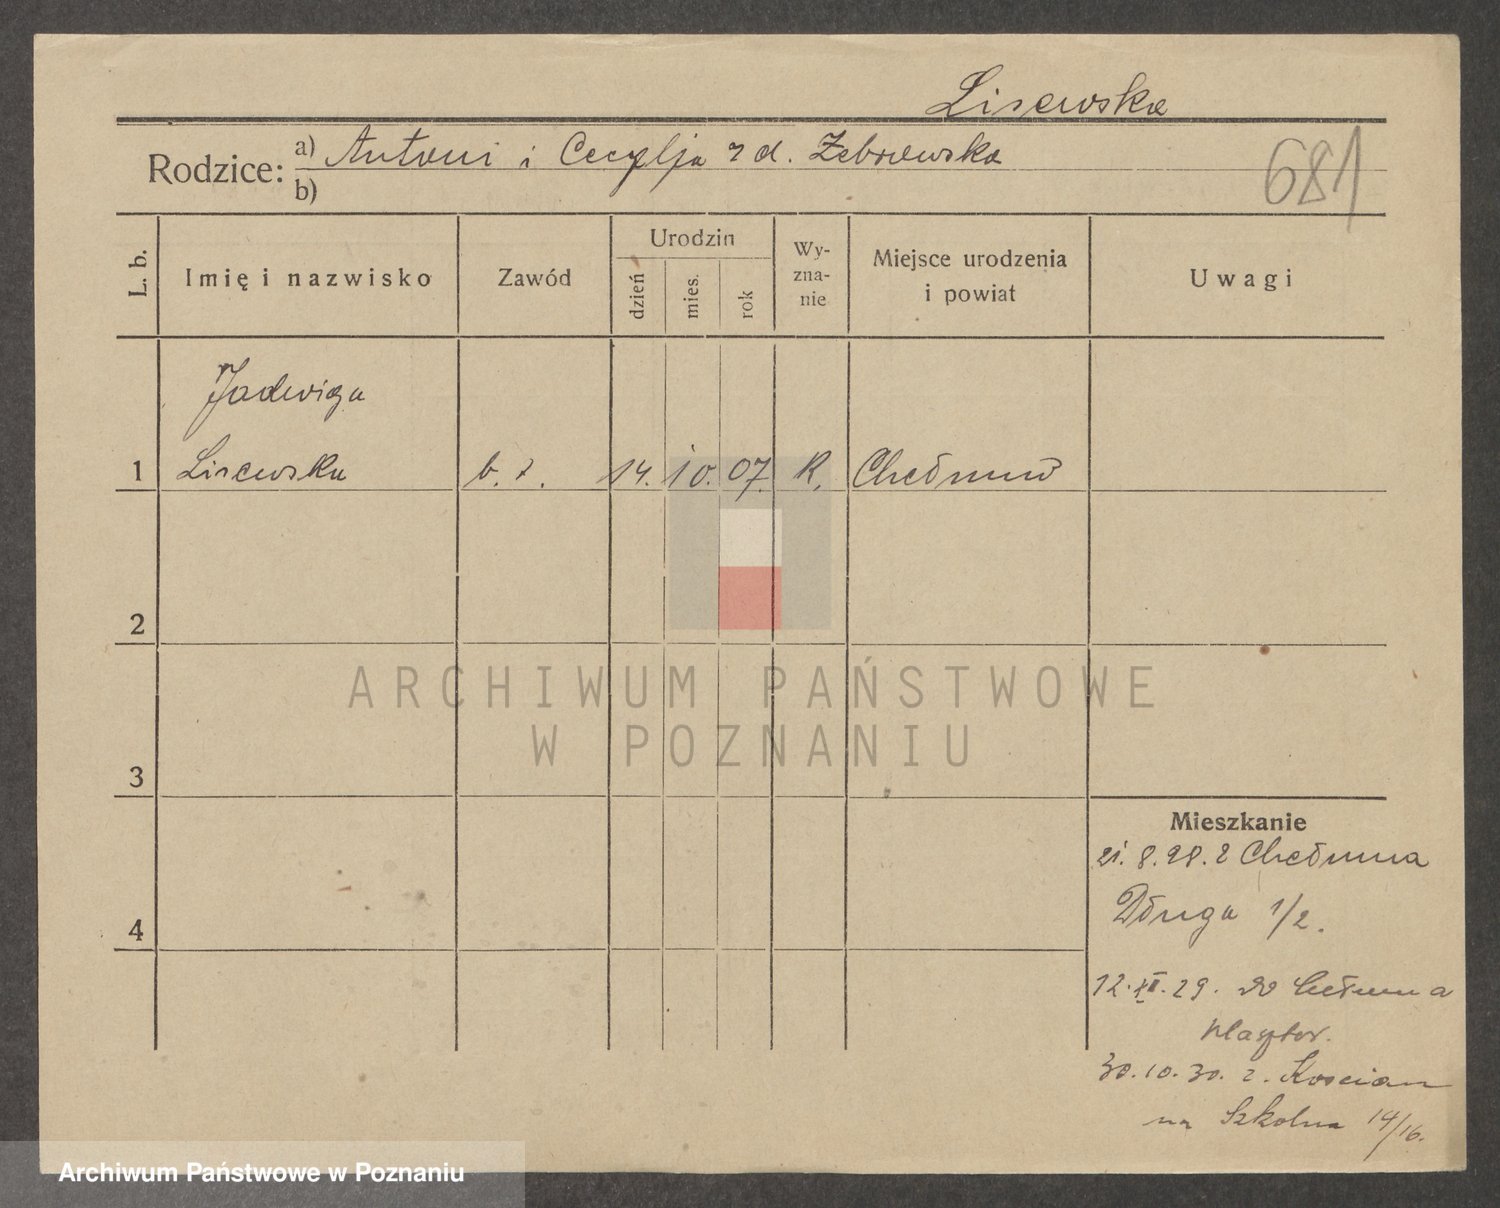 Lisewska
Rodzice: a) Antoni i Cecylja z d. Żebrowska
b)
681
L. b. Imię i nazwisko Zawód Urodzin dzień mies. rok Wy-zna-nie Miejsce urodzenia i powiat Uwagi
Jadwiga
1 Lisewska b. z. 14. 10. 07. K. Chełmno
2
3
4
Mieszkanie
21. 8. 28. z Chełmna
Długa 1/2.
12. XI. 29. do Chełmna
klasztor.
30. 10. 30. z. Koscian
na Szkolna 14/16.
ARCHIWUM PAŃSTWOWE
W POZNANIU
Archiwum Państwowe w Poznaniu